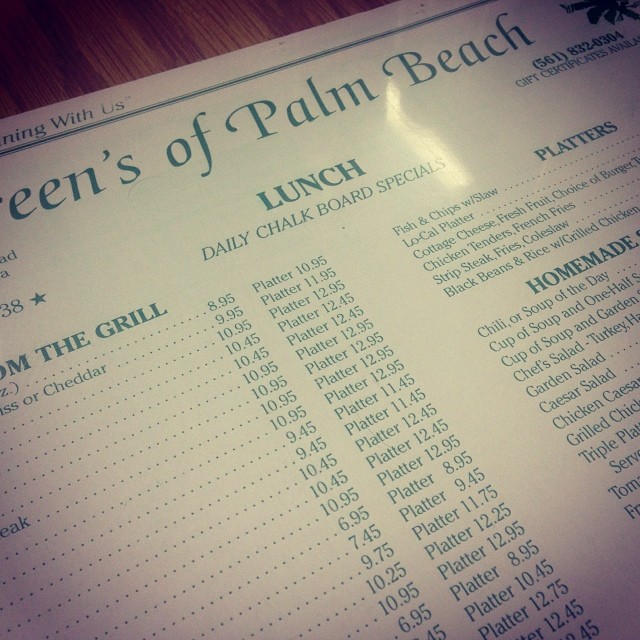 ning With Us"
reen's of Palm Beach
(561) 832-0304
GIFT CERTIFICATES
LUNCH
DAILY CHALK BOARD SPECIALS
38 ★
OM THE GRILL
z.)
iss or Cheddar
eak
8.95 Platter 10.95
9.95 Platter 11.95
10.95 Platter 12.95
10.45 Platter 12.45
10.95 Platter 12.95
10.95 Platter 12.95
10.95 Platter 12.95
9.45 Platter 11.45
10.45 Platter 12.45
10.45 Platter 12.45
10.95 Platter 12.95
6.95 Platter 8.95
7.45 Platter 9.45
9.75 Platter 11.75
10.25 Platter 12.25
10.95 Platter 12.95
6.95 Platter 8.95
Platter 10.45
Platter 12.75
PLATTERS
Fish & Chips w/Slaw
Lo-Cal Platter
Cottage Cheese, Fresh Fruit, Choice of Burger
Chicken Tenders, French Fries
Strip Steak, Fries, Coleslaw
Black Beans & Rice w/Grilled Chicken
HOMEMADE
Chili or Soup of the Day
Cup of Soup and One-Half
Cup of Soup and Garden
Chef's Salad - Turkey, Ha
Garden Salad
Caesar Salad
Chicken Caesa
Grilled Chic
Triple Platt
Serve